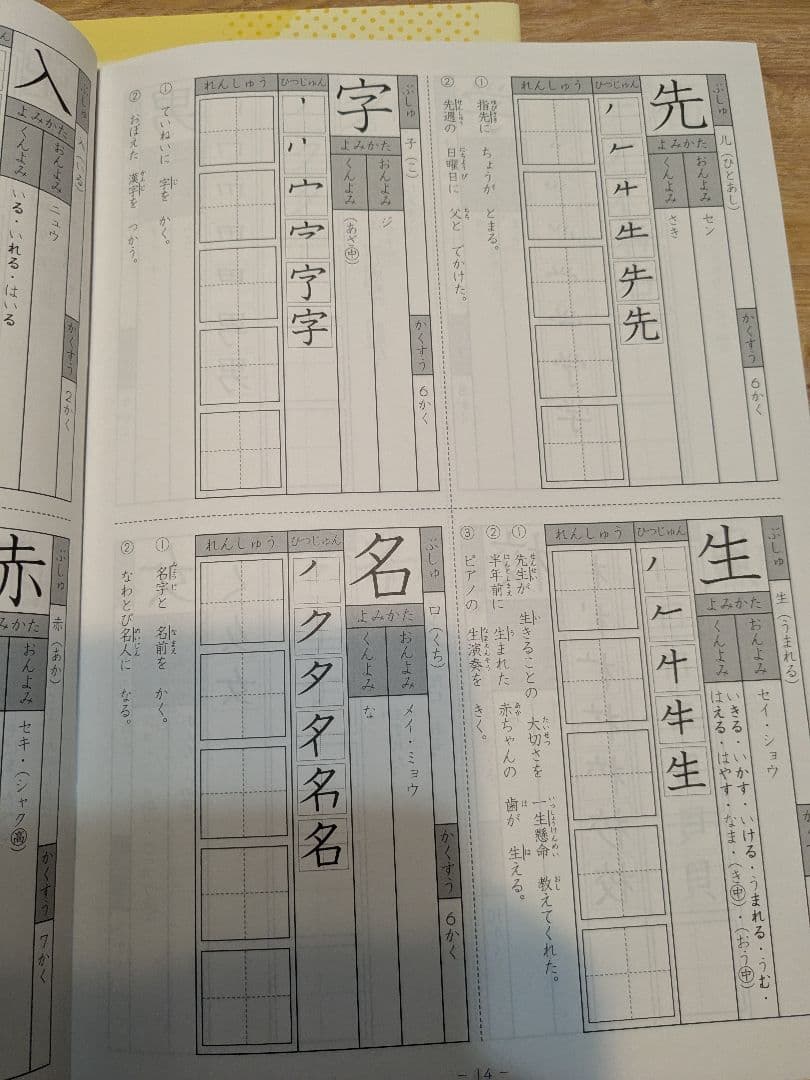 先
ぶしゅ
儿（ひとあし）
かくすう
6かく
よみかた
おんよみ
セン
くんよみ
さき
ひつじゅん
先
れんしゅう
① 指先に ちょうが とまる。
② 先週の 日曜日に 父と でかけた。
字
ぶしゅ
子（こ）
かくすう
6かく
よみかた
おんよみ
ジ
くんよみ
（あざ㊥）
ひつじゅん
字
れんしゅう
① ていねいに 字を かく。
② おぼえた 漢字を つかう。
生
ぶしゅ
生（うまれる）
よみかた
おんよみ
セイ・ショウ
くんよみ
いきる・いかす・いける・うまれる・うむ・
はえる・はやす・なま・（き㊥）・（おう㊥）
ひつじゅん
生
れんしゅう
① 先生が 生きることの 大切さを 一生懸命 教えてくれた。
② 半年前に 生まれた 赤ちゃんの 歯が 生える。
③ ピアノの 生演奏を きく。
名
ぶしゅ
口（くち）
かくすう
6かく
よみかた
おんよみ
メイ・ミョウ
くんよみ
な
ひつじゅん
ク
タ
名
れんしゅう
① 名字と 名前を かく。
② なわとび名人に なる。
入
ぶしゅ
入（いる）
かくすう
2かく
よみかた
おんよみ
ニュウ
くんよみ
いる・いれる・はいる
赤
ぶしゅ
赤（あか）
かくすう
7かく
みかた
おんよみ
セキ・（シャク高）
- 14 -